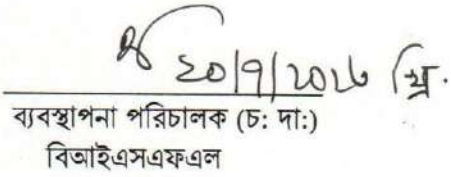 ২০/৭/২০২৬ খ্রি.
ব্যবস্থাপনা পরিচালক (চ: দা:)
বিআইএসএফএল